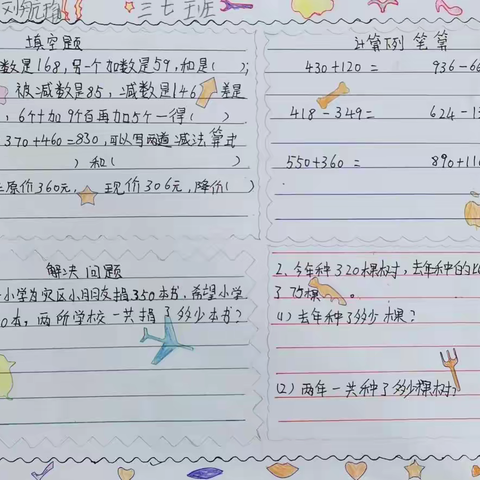 刘航
三七班
填空题
数是168,另一个加数是59,和是( );
被减数是85,减数是146,差是
6个十加9个百再加5个一得( )
370+460=830,可以写两道减法算式
) 和( )
原价360元, 现价306元,降价( )
计算下列 笔算
430+120= 936-6
418-349= 624-1
550+360= 890+11
解决问题
小学为灾区小朋友捐350本书,希望小学
0本,两所学校一共捐了多少本书?
2、今年种320棵树,去年种的比
了75棵。
(1)去年种了多少棵?
(2)两年一共种了多少棵树?